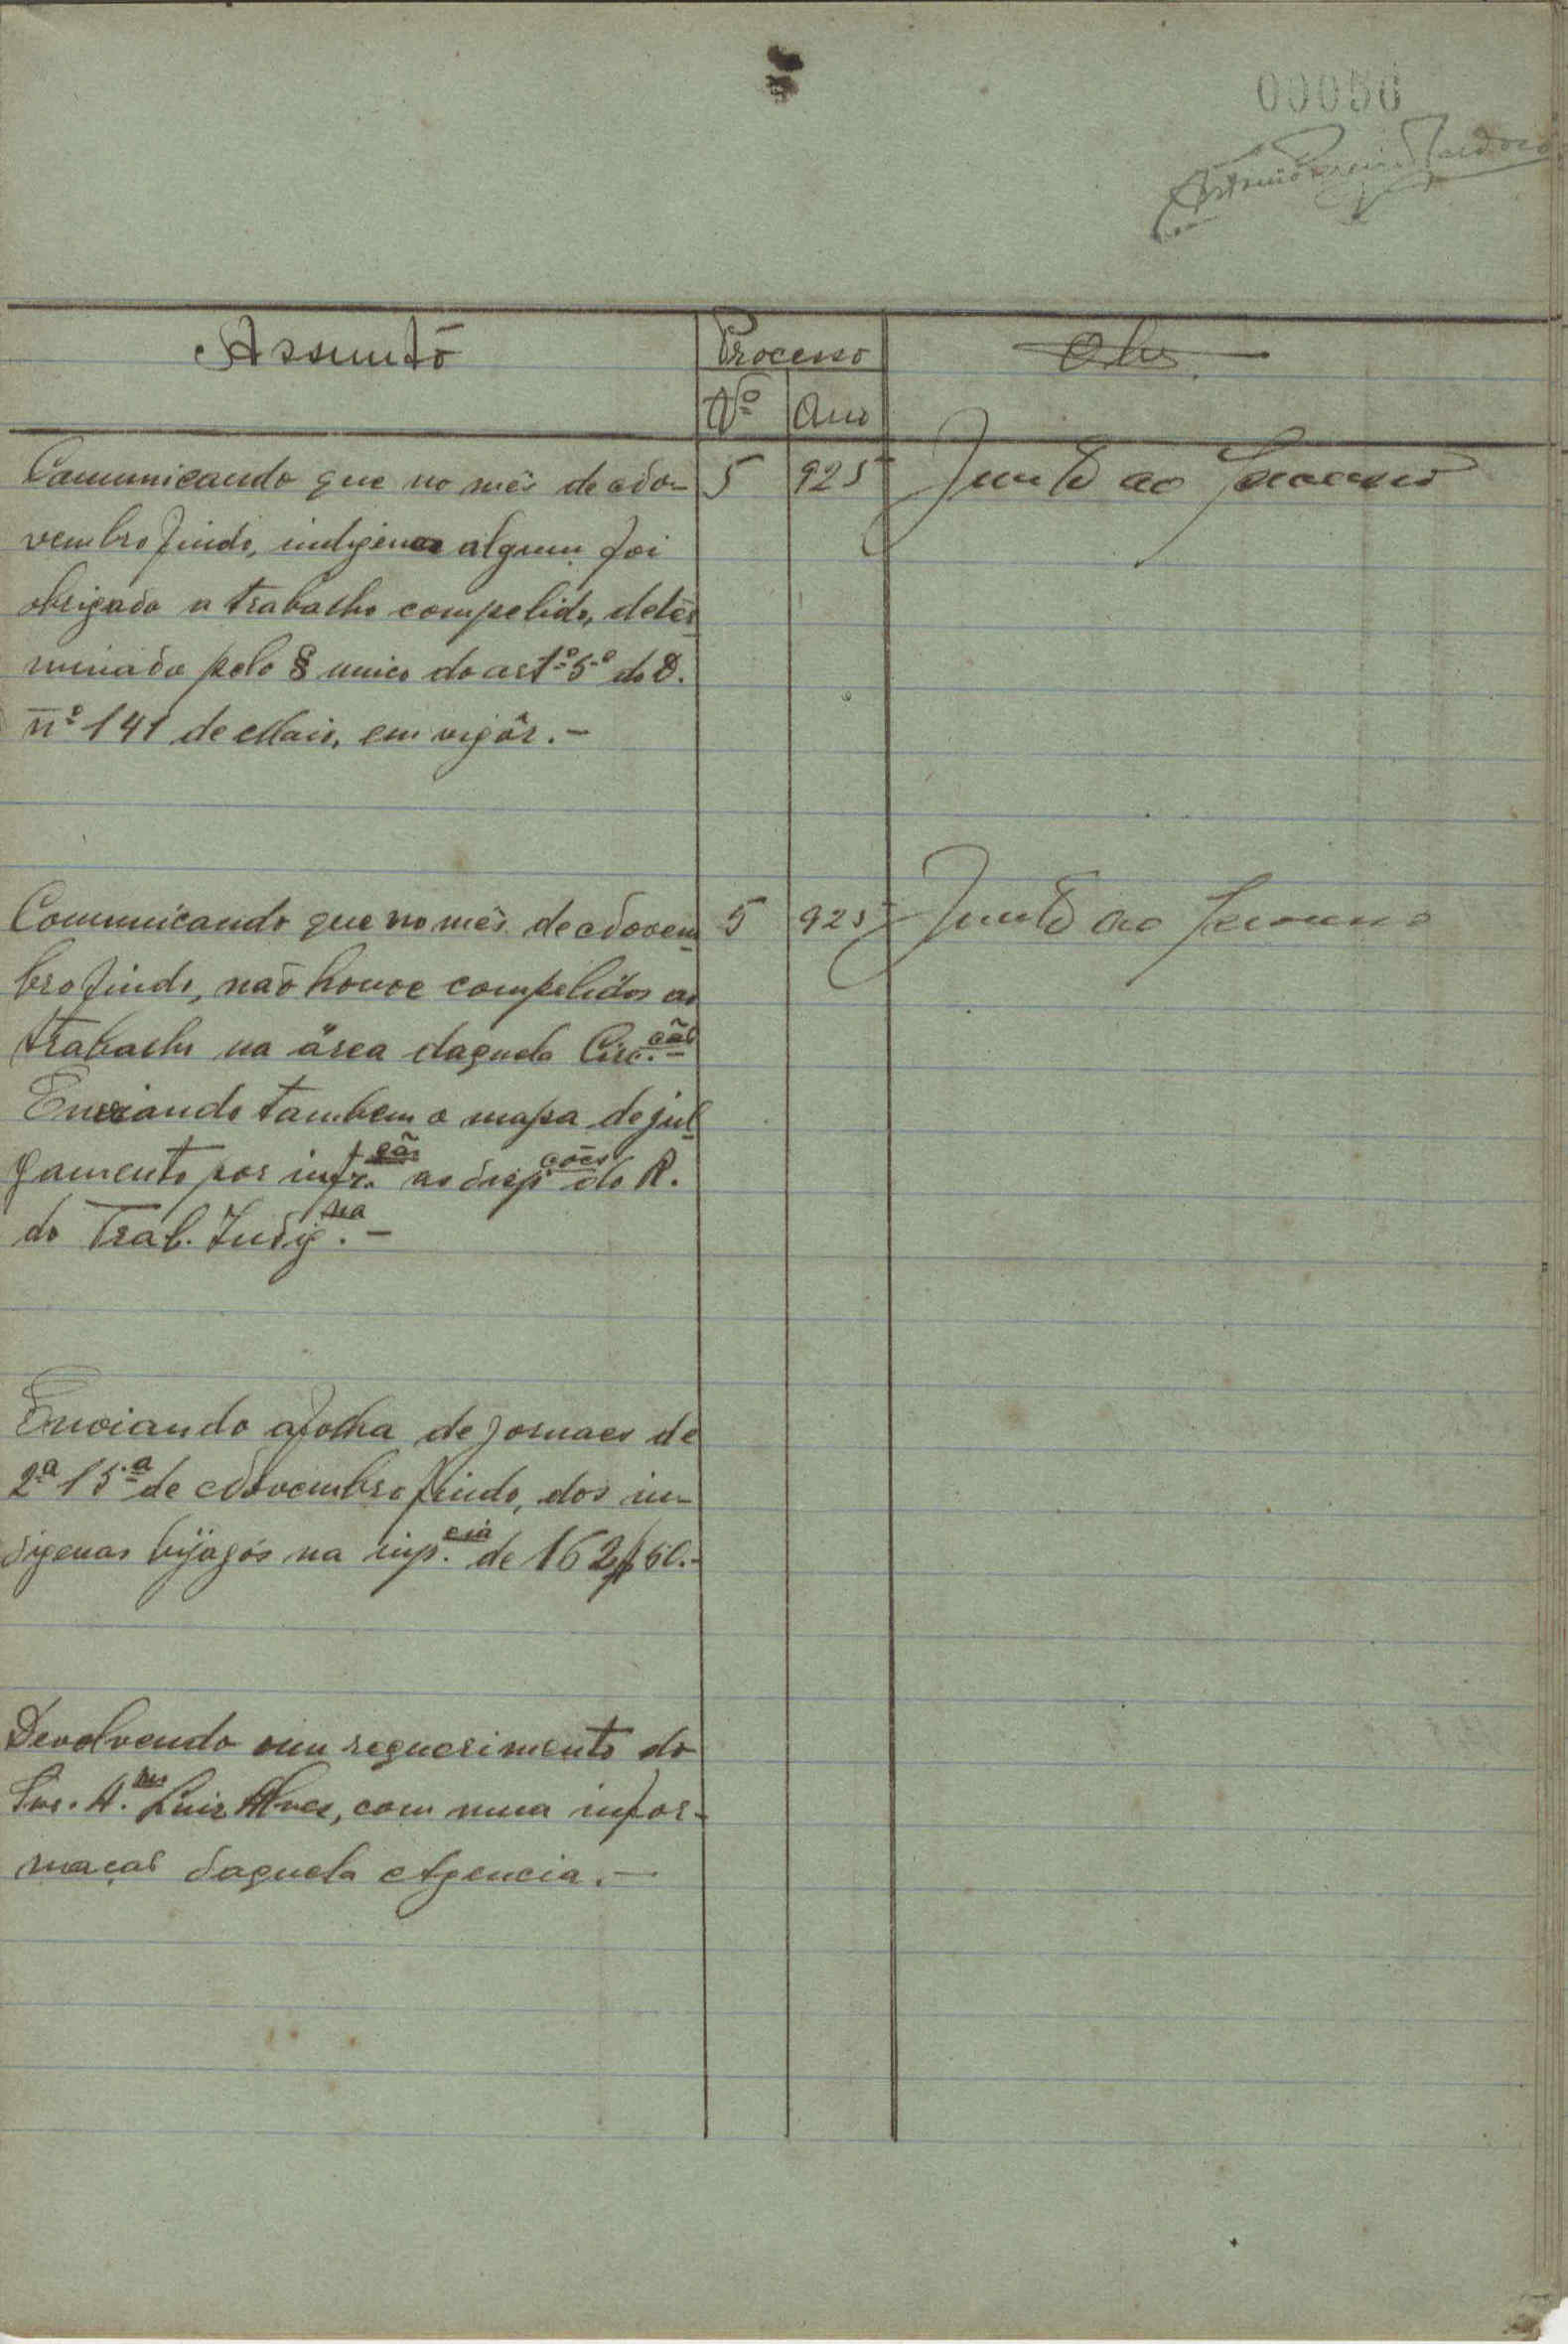 00050
Assunto Processo Obs.
Nº Ano
Comunicando que no mês de No- 5 925 Junto ao processo
vembro findo, indigena algum foi
obrigado a trabalho compelido, deter
minado pelo § unico do artº 5º do D.
nº 141 de Maio, em vigôr.-
Comunicando que no mês de Novem 5 925 Junto ao processo
bro findo, não houve compelidos ao
trabalho na área daquela Circ.ção-
Enviando tambem o mapa de jul
gamento por infr.ção as disp.ções do R.
do Trab. Indig.na-
Enviando a folha de jornaes de
2ª 15.ª de Novembro findo, dos in-
digenas bijagós na imp.cia de 162$50.-
Devolvendo um requerimento do
Luiz Alves, com uma infor-
mação daquela Agencia.-